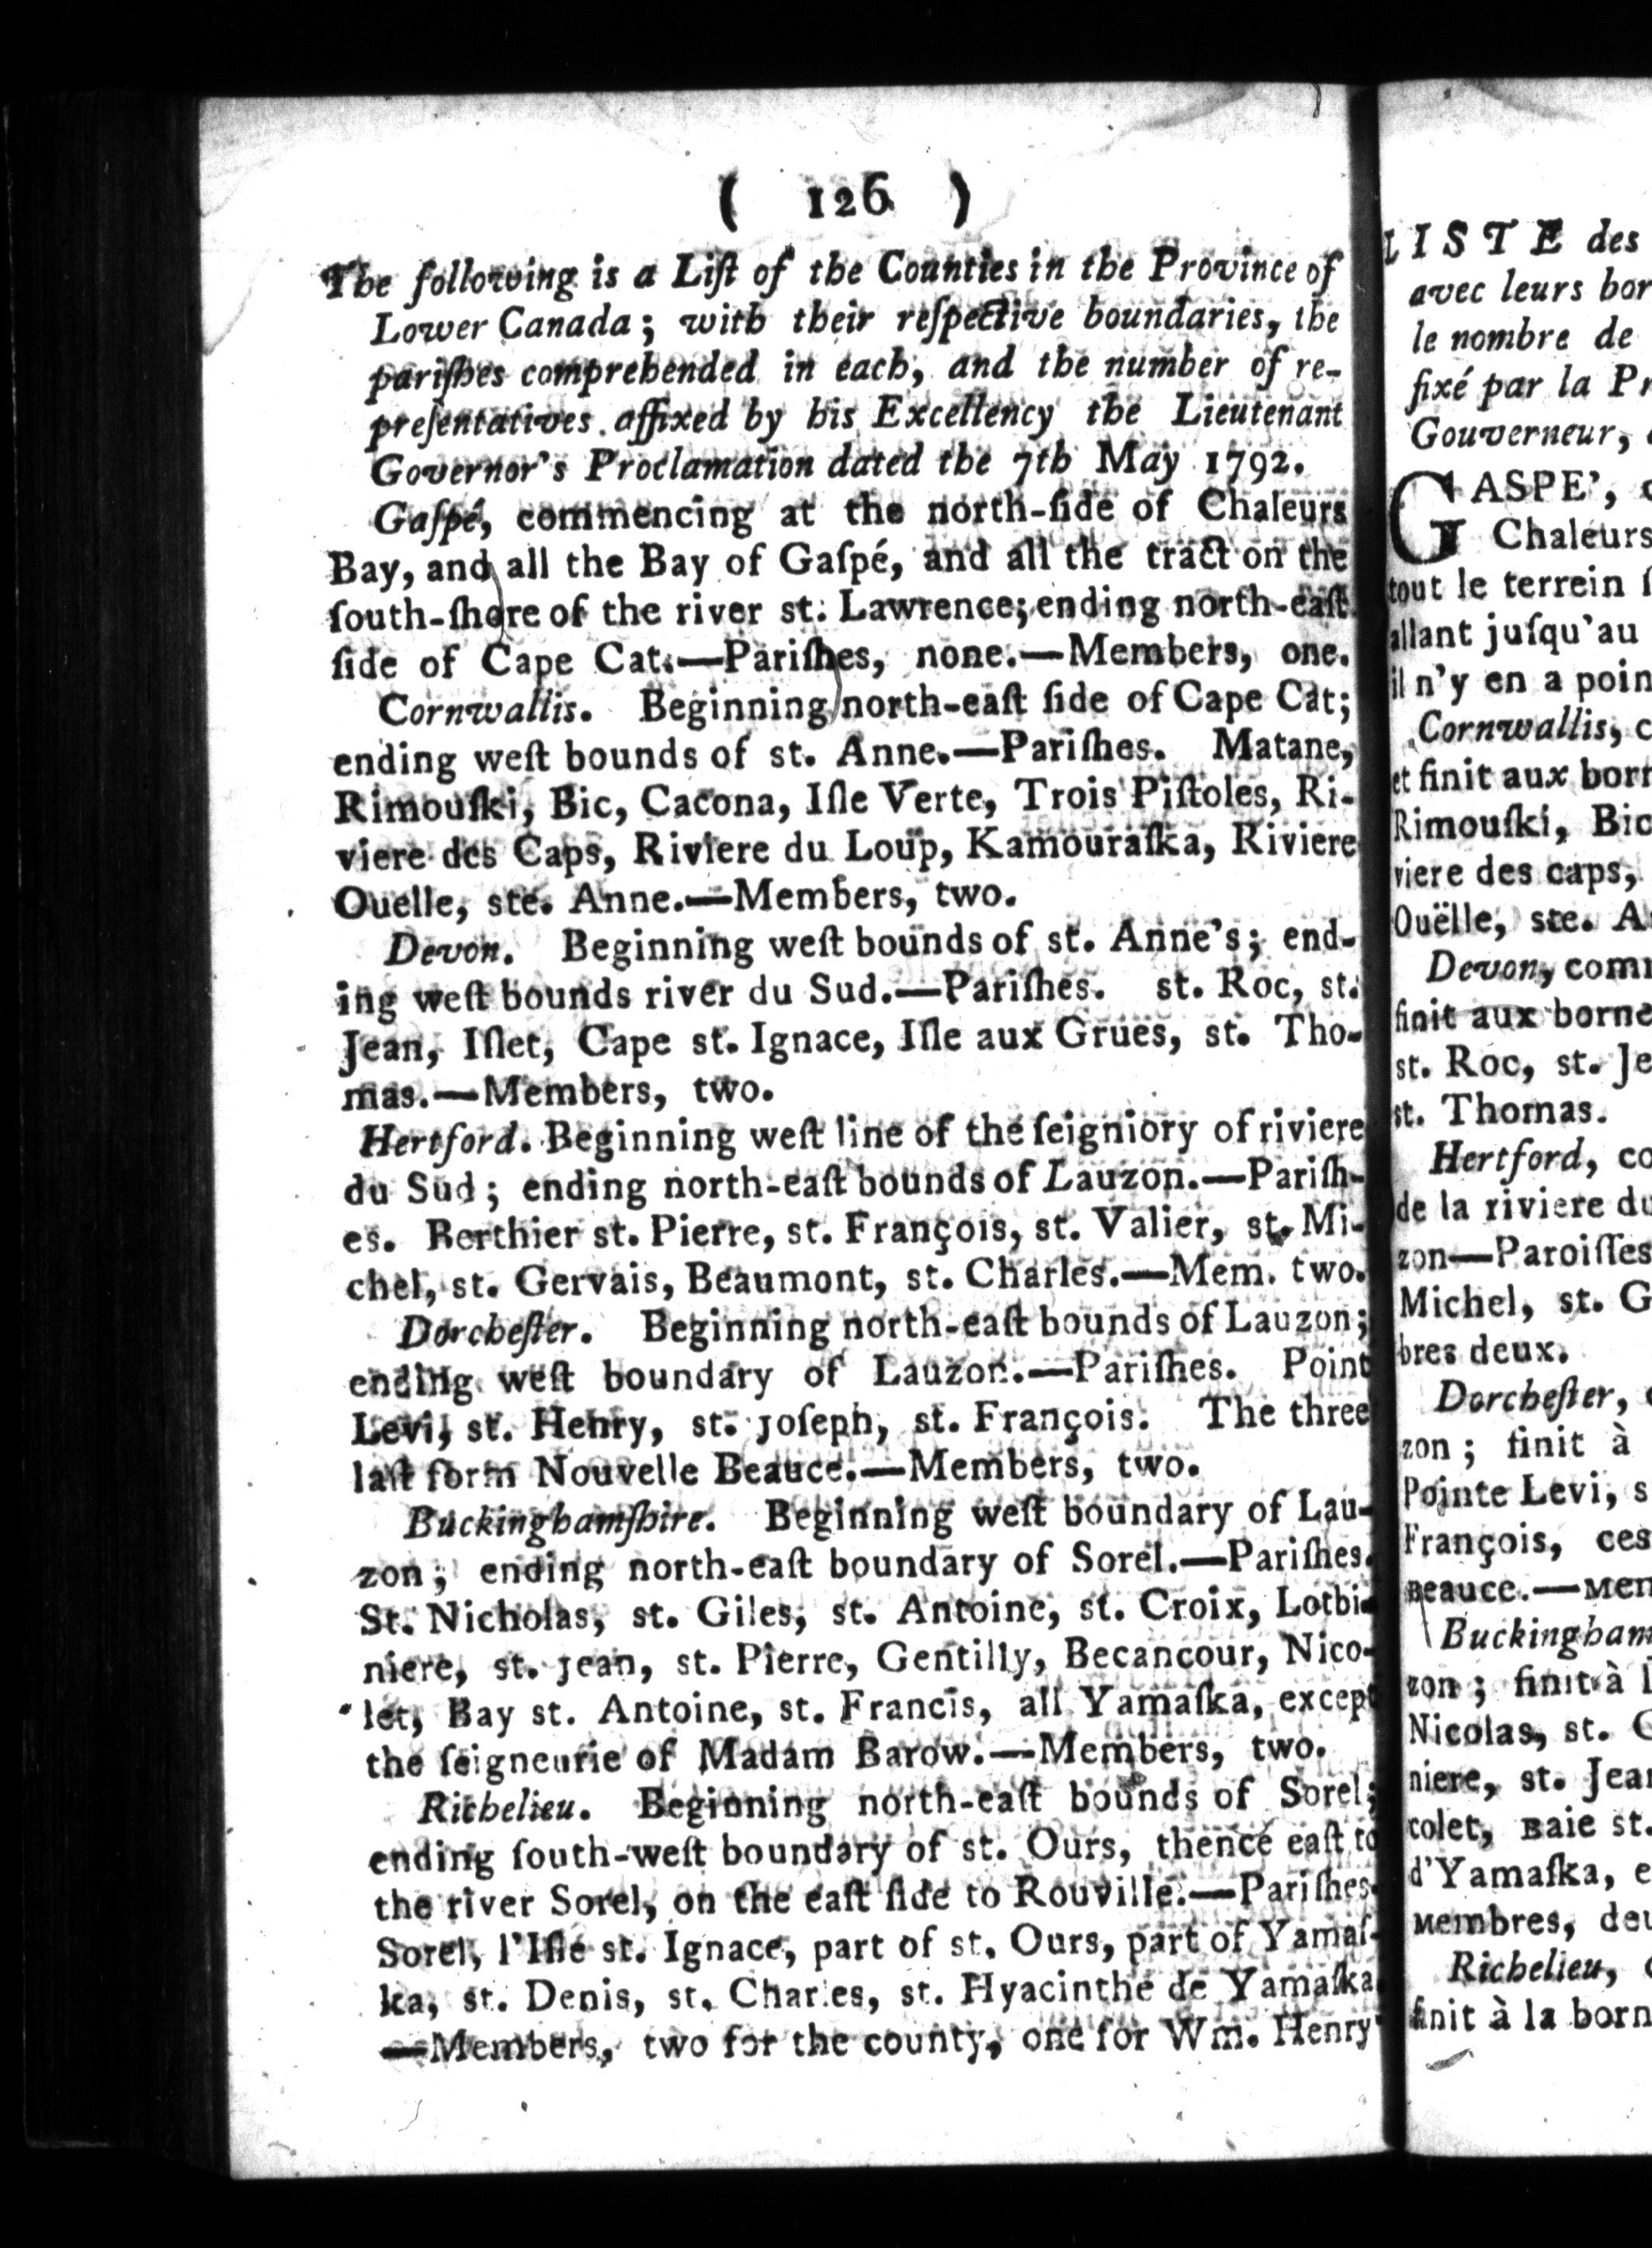 ( 126 )
The following is a Liſt of the Counties in the Province of
Lower Canada; with their reſpective boundaries, the
pariſhes comprehended in each, and the number of re-
preſentatives affixed by his Excellency the Lieutenant
Governor's Proclamation dated the 7th May 1792.
Gaſpé, commencing at the north-ſide of Chaleurs
Bay, and all the Bay of Gaſpé, and all the tract on the
ſouth-ſhore of the river st. Lawrence; ending north-eaſt
ſide of Cape Cat.—Pariſhes, none.—Members, one.
Cornwallis. Beginning north-eaſt ſide of Cape Cat;
ending weſt bounds of st. Anne.—Pariſhes. Matane,
Rimouſki, Bic, Cacona, Iſle Verte, Trois Piſtoles, Ri-
viere des Caps, Riviere du Loup, Kamouraſka, Riviere
Ouelle, ste. Anne.—Members, two.
Devon. Beginning weſt bounds of st. Anne's; end-
ing weſt bounds river du Sud.—Pariſhes. st. Roc, st.
Jean, Iſlet, Cape st. Ignace, Iſle aux Grues, st. Tho-
mas.—Members, two.
Hertford. Beginning weſt line of the ſeigniory of riviere
du Sud; ending north-eaſt bounds of Lauzon.—Pariſh-
es. Berthier st. Pierre, st. François, st. Valier, st. Mi-
chel, st. Gervais, Beaumont, st. Charles.—Mem. two.
Dorcheſter. Beginning north-eaſt bounds of Lauzon;
ending weſt boundary of Lauzon.—Pariſhes. Point
Levi, st. Henry, st. Joſeph, st. François. The three
laſt form Nouvelle Beauce.—Members, two.
Buckinghamſhire. Beginning weſt boundary of Lau-
zon; ending north-eaſt boundary of Sorel.—Pariſhes.
St. Nicholas, st. Giles, st. Antoine, st. Croix, Lotbi-
niere, st. Jean, st. Pierre, Gentilly, Becancour, Nico-
let, Bay st. Antoine, st. Francis, all Yamaſka, except
the ſeigneurie of Madam Barow.—Members, two.
Richelieu. Beginning north-eaſt bounds of Sorel;
ending ſouth-weſt boundary of st. Ours, thence eaſt to
the river Sorel, on the eaſt ſide to Rouville.—Pariſhes.
Sorel, l'Iſle st. Ignace, part of st. Ours, part of Yamaſ-
ka, st. Denis, st. Charles, st. Hyacinthe de Yamaſka
—Members, two for the county, one for Wm. Henry
LISTE des
avec leurs bor
le nombre de
fixé par la Pr
Gouverneur,
GASPE',
Chaleurs
tout le terrein ſ
allant juſqu'au
il n'y en a poin
Cornwallis, c
et finit aux born
Rimouſki, Bic
viere des caps,
Ouëlle, ste. A
Devon, com
finit aux borne
st. Roc, st. Je
st. Thomas.
Hertford, co
de la riviere du
zon—Paroiſſes
Michel, st. G
bres deux.
Dorcheſter,
zon; finit à
Pointe Levi, s
François, ces
Beauce.—Mem
Buckingham
zon; finit à l
Nicolas, st. G
niere, st. Jean
colet, Baie st.
d'Yamaſka, e
Membres, deu
Richelieu,
finit à la born